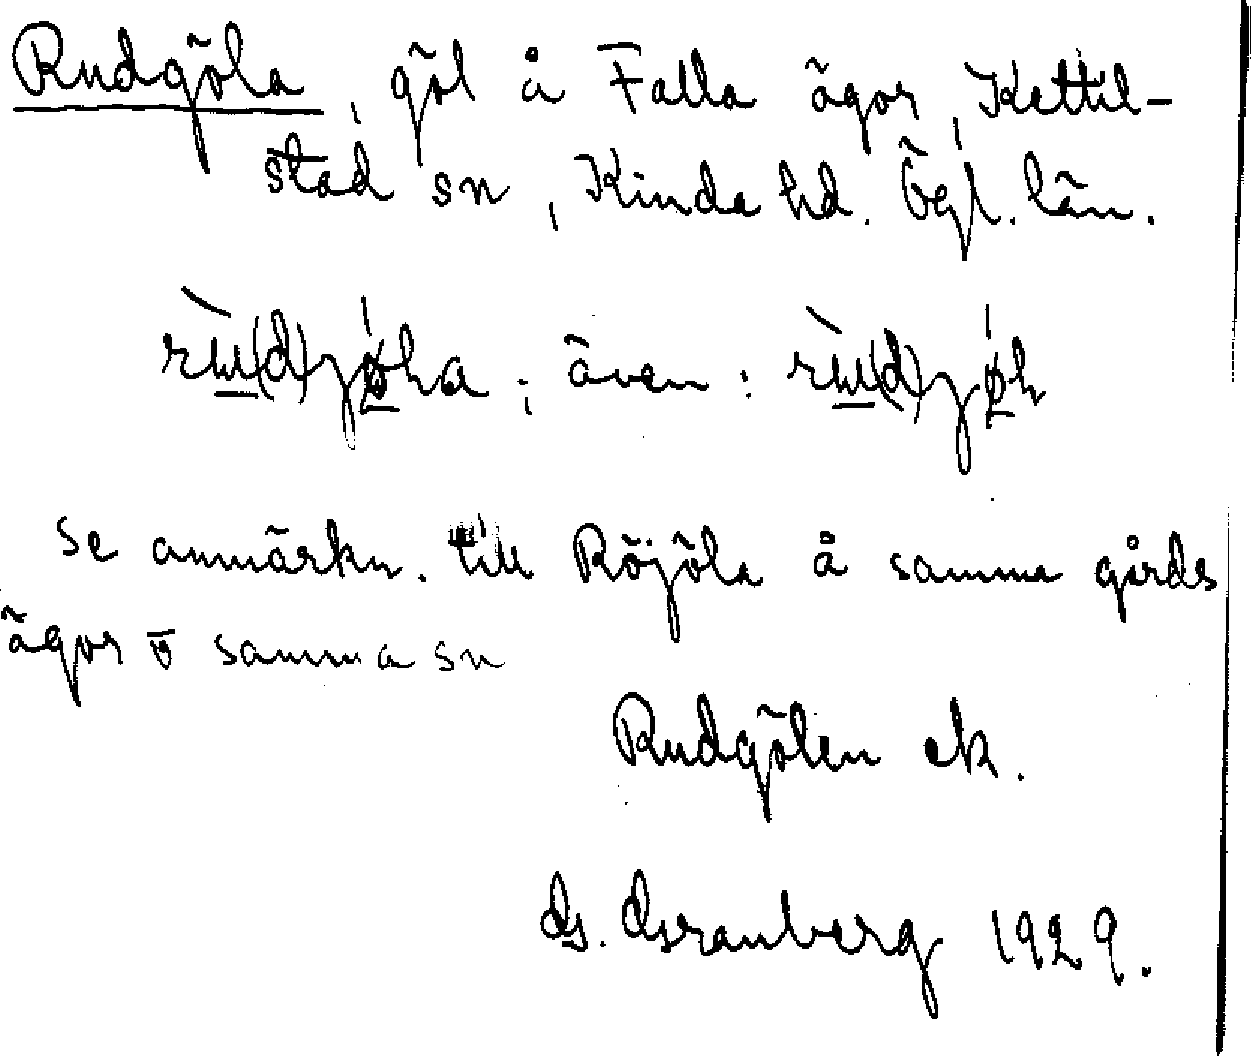 Rudgöla, göl å Falla ägor, Kettil-
stad sn, Kinda hd. Ögl. län.
även:
se anmärkn. till Röjöla å samma gårds
ägor o samma sn
Rudgölen ek.
G. Granberg 1929.